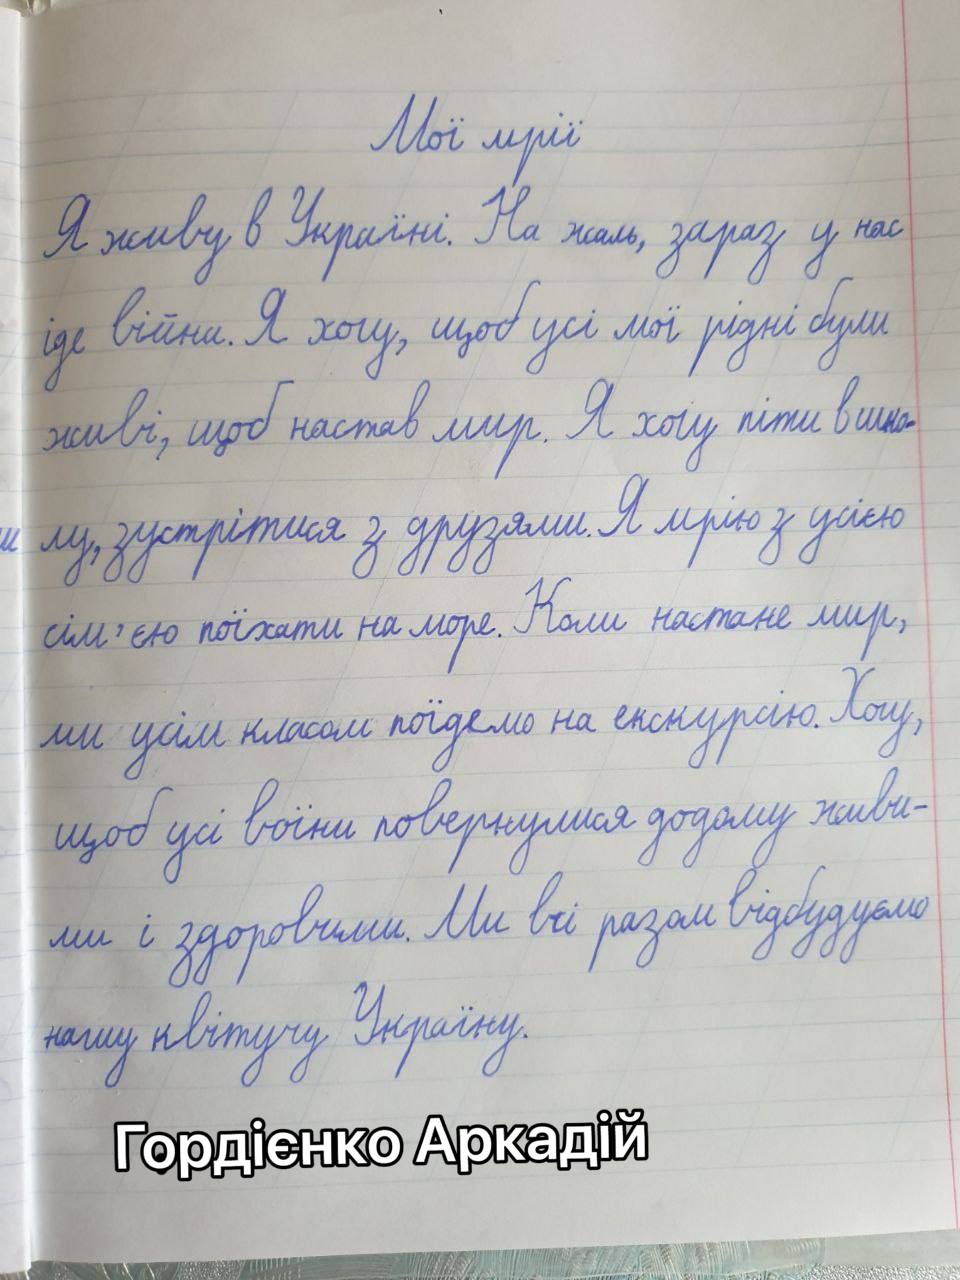 Мої мрії
Я живу в Україні. На жаль, зараз у нас
іде війна. Я хочу, щоб усі мої рідні були
живі, щоб настав мир. Я хочу піти в шко-
лу, зустрітися з друзями. Я мрію з усією
сім'єю поїхати на море. Коли настане мир,
ми усім класом поїдемо на екскурсію. Хочу,
щоб усі воїни повернулися додому живи-
ми і здоровими. Ми всі разом відбудуємо
нашу квітучу Україну.
Гордієнко Аркадій